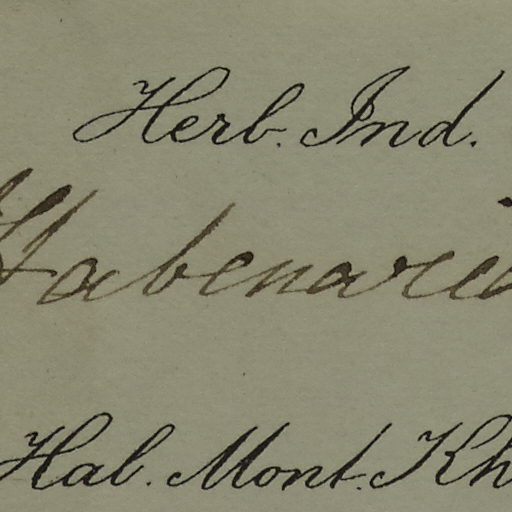 Herb. Ind.
Habenaria
Hab. Mont. Kh